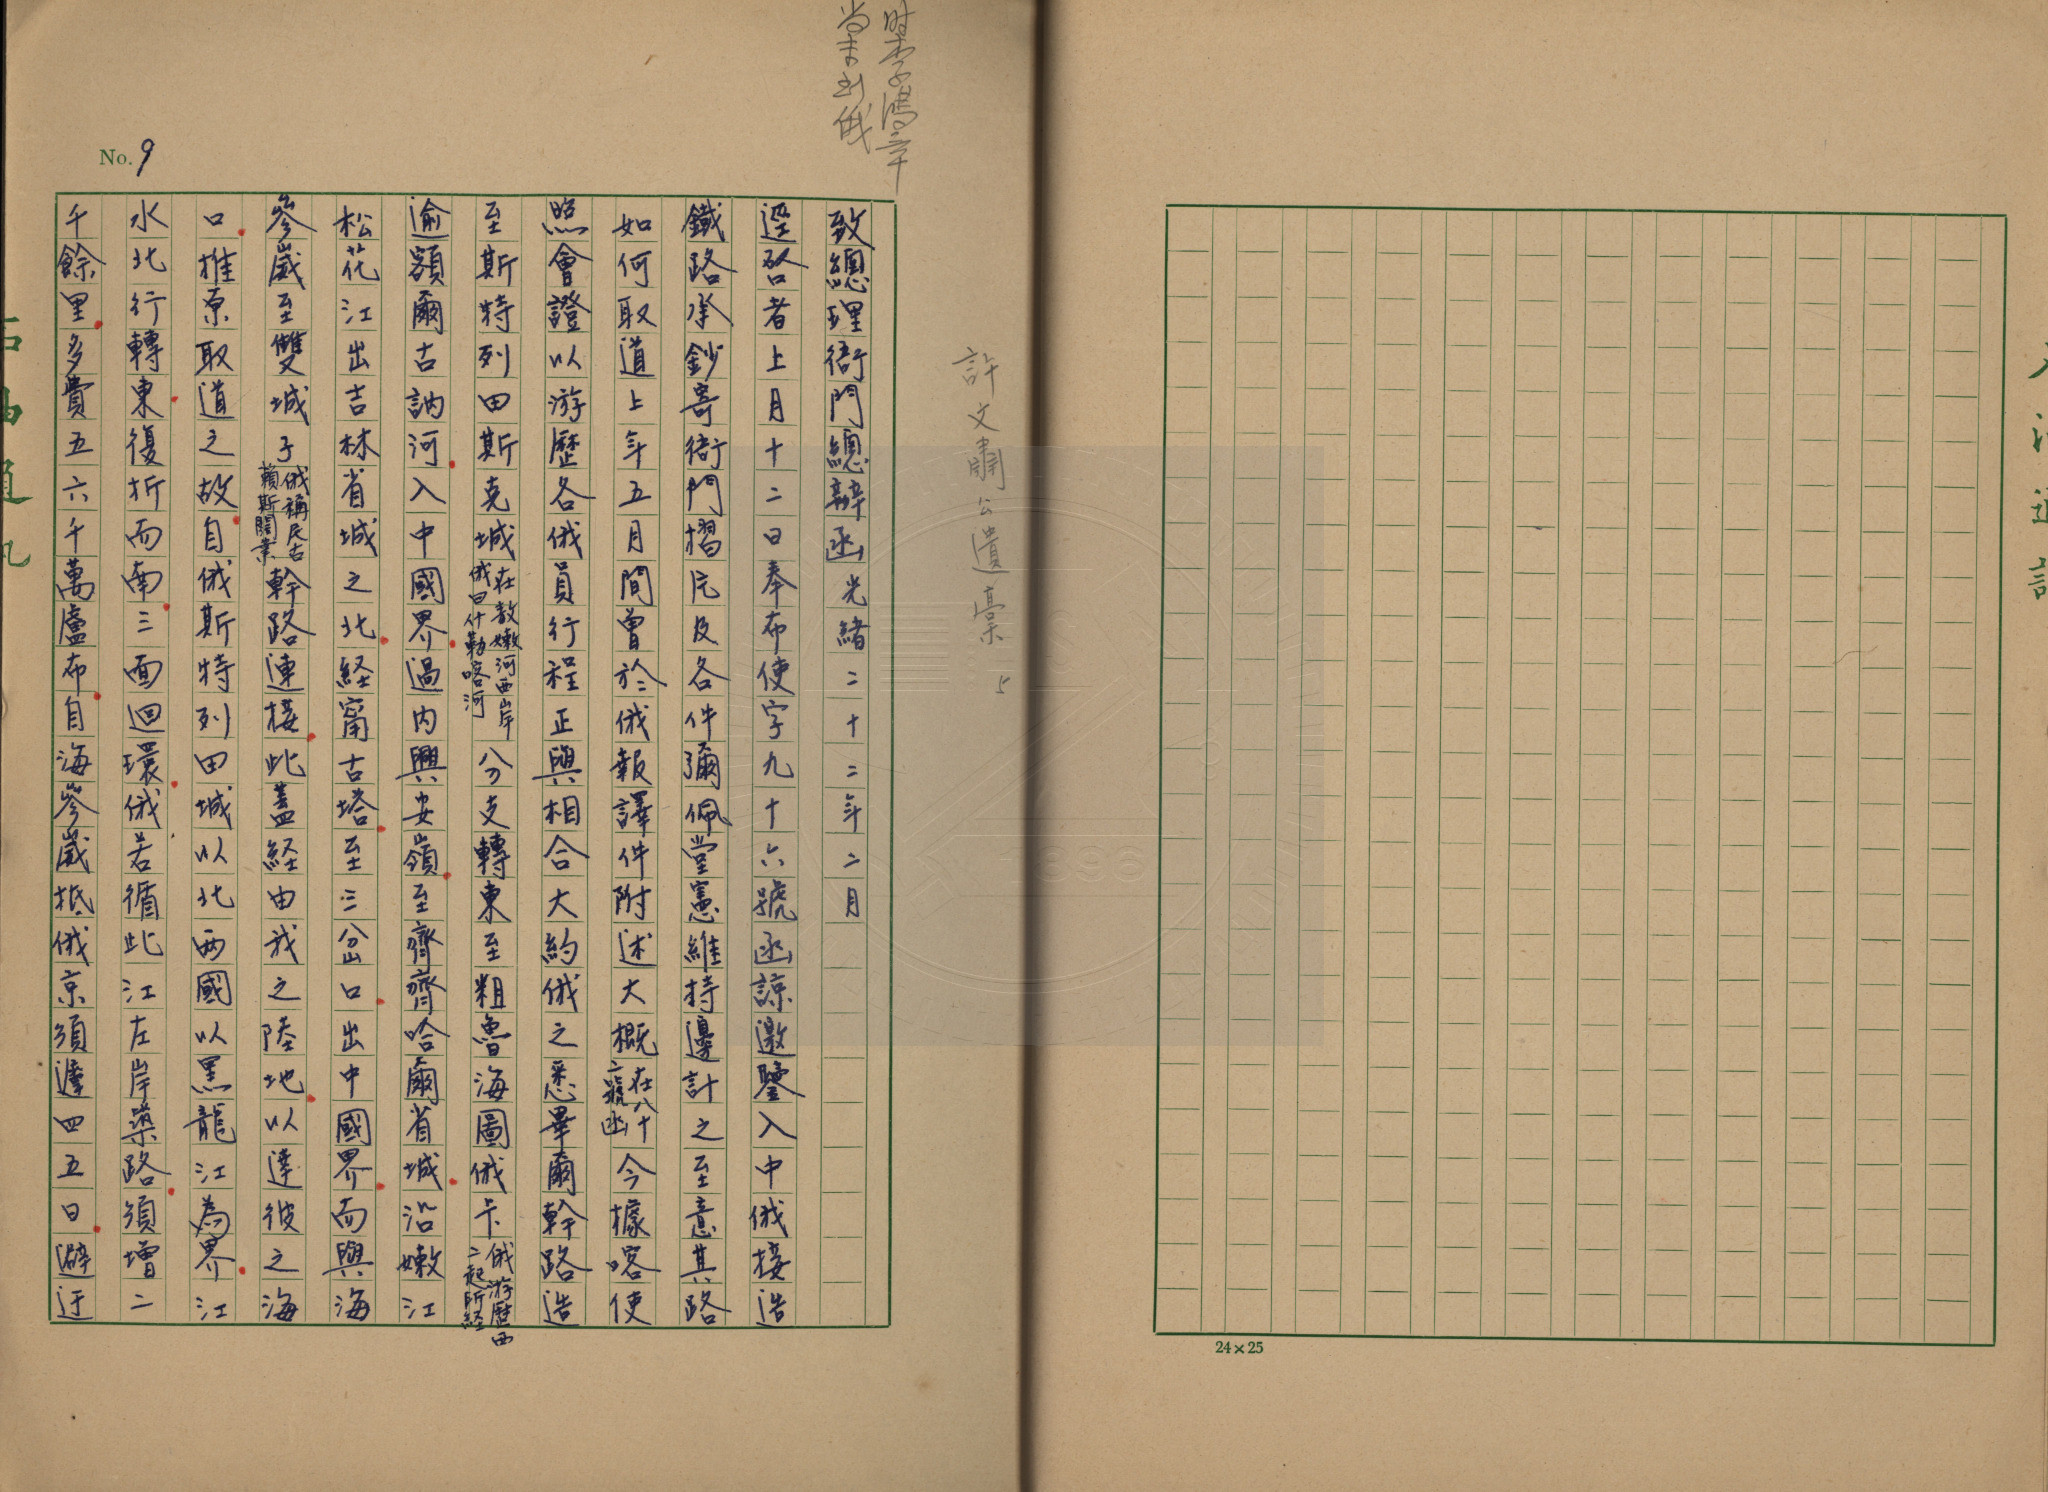 時李鴻章
尚未到俄
許文肅公遺稾 5
No. 9
致總理衙門總辦函光緒二十二年二月
逕啓者上月十二日奉布使字九十六號函諒邀鑒入中俄接造
鐵路承鈔寄衙門摺片及各件彌佩堂憲維持邊計之至意其路
如何取道上年五月間曾於俄報譯件附述大概在八十二號函今據喀使
照會證以游歷各俄員行程正與相合大約俄之悉畢爾幹路造
至斯特列田斯克城在敖嫩河西岸俄曰什勒喀河分支轉東至粗魯海圖俄卡俄游歷西二起所經
逾額爾古訥河入中國界過內興安嶺至齊齊哈爾省城沿嫩江
松花江出吉林省城之北経甯古塔至三岔口出中國界而與海
參崴至雙城子俄稱尼古賴斯闊業幹路連接此蓋経由我之陸地以達彼之海
口推原取道之故自俄斯特列田城以北兩國以黑龍江為界江
水北行轉東復折而南三面迴環俄若循此江左岸築路須增二
千餘里多費五六千萬盧布自海參崴抵俄京須遲四五日避迂
24×25